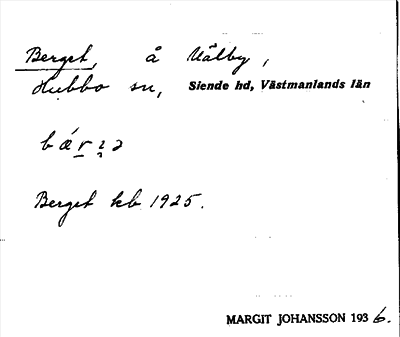 Berget, å Målby,
Hubbo sn, Siende hd, Västmanlands län
Berget kb 1925.
MARGIT JOHANSSON 1936.